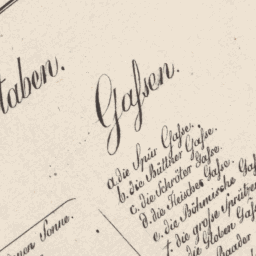 taben.
Gaſsen.
a. die Spür Gaſse.
b. die Büttner Gaſse.
c. die Schröter Gaſse.
d. die Fleischer Gaſse.
e. die Böhmische Gaſ
f. die große Sprüber
die Globen Gaſs
Baader
nen Sonne.